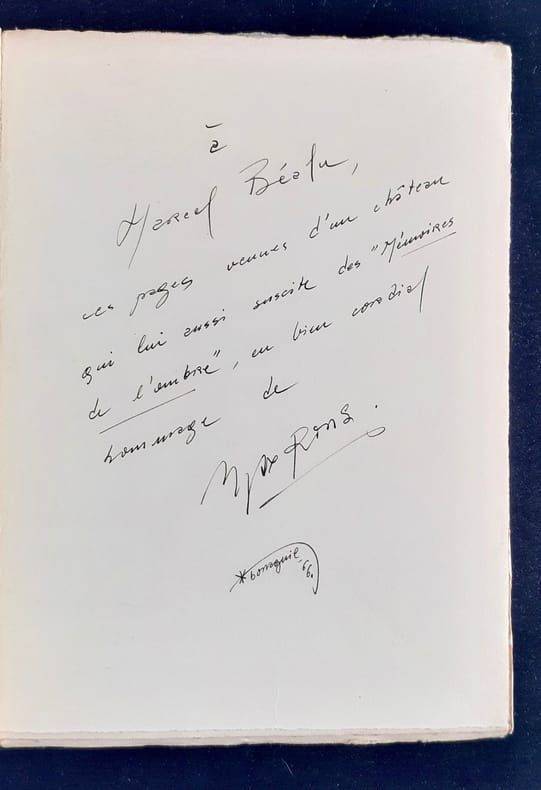 à
Marcel Béalu,
ces pages venues d'un château
qui lui aussi suscite des "Mémoires
de l'ombre", en bien cordial
hommage de
Max Rons.
*bonaguil-66.